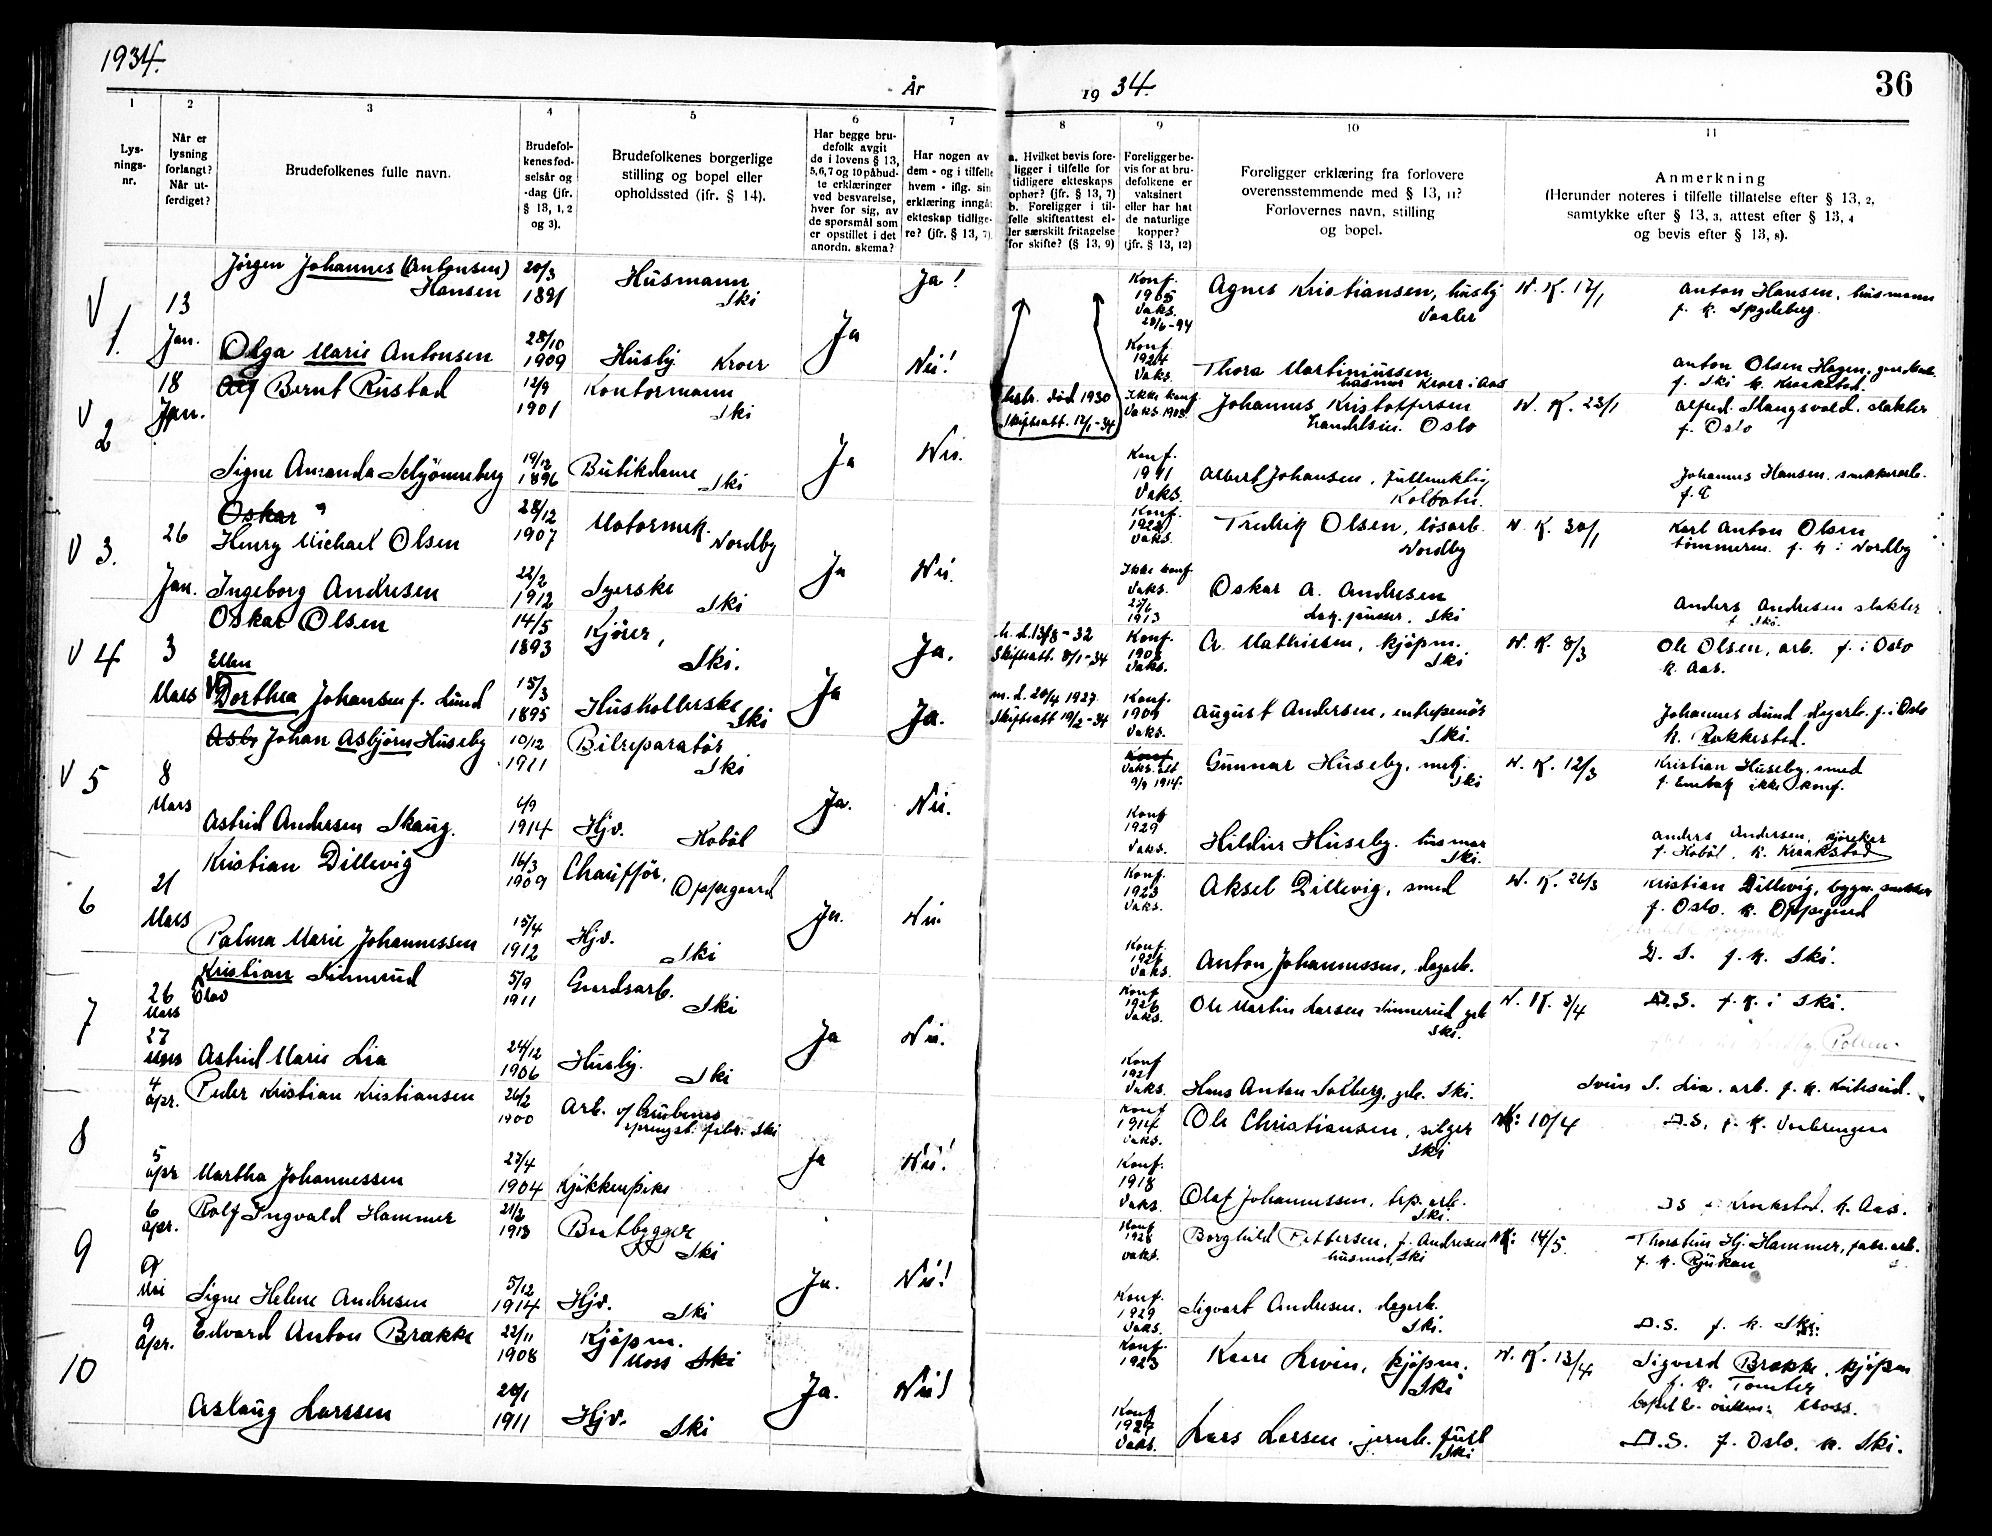 1934.
År
19 34.
36
1
2
3
4
5
6
7
8
9
10
11
Lys-
nings-
nr.
Når er
lysning
forlangt?
Når ut-
ferdiget?
Brudefolkenes fulle navn.
Brudefol-
kenes fød-
selsår og
-dag (jfr.
§ 13, 1, 2
og 3).
Brudefolkenes borgerlige
stilling og bopel eller
opholdssted (ifr. § 14).
Har begge bru-
defolk avgit
de i lovens § 13,
5,6,7 og 10 påbud-
te erklæringer
ved besvarelse,
hver for sig, av
de spørsmål som
er opstillet i det
anordn. skema?
Har nogen av
dem - og i tilfelle
hvem - iflg. sin
erklæring inngåt
ekteskap tidlige-
re? (jfr. § 13, 7).
a. Hvilket bevis fore-
ligger i tilfelle for
tidligere ekteskaps
ophør? (jfr. § 13, 7)
b. Foreligger i til-
felle skifteattest el-
ler særskilt fritagelse
for skifte? (§ 13, 9)
Foreligger be-
vis for at bru-
defolkene er
vaksinert
eller har hat
de naturlige
kopper?
(jfr. § 13, 12)
Foreligger erklæring fra forlovere
overensstemmende med § 13, 11?
Forlovernes navn, stilling
og bopel.
Anmerkning
(Herunder noteres i tilfelle tillatelse efter § 13, 2,
samtykke efter § 13, 3, attest efter § 13, 4
og bevis efter § 13, 8).
V 1. 13 Jan.
Jørgen Johannes (Antonsen) Hansen 20/3 1891 Husmann Ski Ja Ja! Konf. 1905 Vaks. Agnes Kristiansen, husby Vaaler N. K. 17/1 Anton Hansen, husmann f. K. Spydeberg.
Olga Marie Antonsen 28/10 1909 Husby Kroer Nei! Konf. 1924 Vaks. Thora Martiniussen husmor Kroer i Aas Anton Olsen Hagen f. Ski K. Kraakstad
V 2 18 Jan.
Alf Bernt Rustad 12/9 1901 Kontormann Ski Ja Nei. hstr. død 1930 Skifteatt. 12/1-34 Ikke konf Vaks. 1903 Johannes Kristoffersen handelsm. Oslo N. K. 23/1 Alfred Mangsvold. slakter f. Oslo
Signe Amanda Schjønneberg 19/12 1896 Butikdame Ski Konf. 1911 Vaks. Albert Johansen, fullmektig Kolbotn. Johannes Hansen. snekkerarb.
V 3. 26 Jan.
Oskar
Henry Michael Olsen 28/12 1907 Motormek. Nordby Ja Nei. Konf. 1922 Vaks. Fredrik Olsen, løsarb. Nordby N. K. 30/1 Karl Anton Olsen tømmerm. f. K i Nordby
Ingeborg Andresen 22/2 1912 Syerske Ski Ikke konf Vaks. 1913 Oskar A. Andresen Ski Anders Andresen slakter f. Ski.
V 4 3 Mars
Oskar Olsen 14/5 1893 Kjører, Ski. Ja Ja. h. d. 13/8-32 Skifteatt. 8/1-34 Konf. Vaks. A. Mathisen, kjøpm. Ski N. K. 8/3 Ole Olsen, arb. f. i Oslo K. Aas.
Ellen
Dorthea Johansen f. Lund 15/3 1895 Husholderske Ski Ja. m. d. 20/4 1927 Skifteatt 19/2-34 Konf. 1909 Vaks. August Andersen, entrepenør Ski. Johannes Lund dagarb. f. i Oslo K. Rakkestad.
V 5 8 Mars
Asbj Johan Asbjørn Huseby 10/12 1911 Bilreparatør Ski Ja. Nei. Konf Vaks. att. 9/9 1914. Gunnar Huseby, mek. Ski N. K. 12/3 Kristian Huseby, smed f. Enebak ikke konf.
Astrid Andersen Skaug. 6/9 1914 Hjv. Hobøl Konf 1929 Vaks. Hildur Huseby. husmor Ski. Anders Andersen, f. Hobøl, K. Kraakstad
6 21 Mars
Kristian Dillevig 16/3 1909 Chauffør, Oppegaard Ja. Nei. Konf. 1923 Vaks. Aksel Dillevig, smed N. K. 26/3 Kristian Dillevig, f. Oslo. K. Oppegaard
Palma Marie Johannessen 15/4 1912 Hjv. Ski Konf. Vaks. Anton Johannessen, dagarb. D. S. f. K. Ski.
7 26 Mars 27 Mars
Kristian Sinnerud
Olav 5/9 1911 Gaardsarb. Ski Ja Nei. Konf 1926 Vaks. Ole Martin Larsen Sinnerud Ski. N. K. 3/4 D.S. f. K. i Ski.
Astrid Marie Lia 24/12 1906 Husby. Ski Konf 1921 Vaks. Hans Anton Solberg, Ski. Svein S. Lia. arb. f. K.
8 4 Apr. 5 Apr
Peder Kristian Kristiansen 26/2 1900 Arb. v/ Grubernes sprengst. fabr. Ski Ja Nei! Konf 1914 Vaks. Ole Christiansen, selger Ski NK: 10/4 D.S. f. K.
Martha Johannessen 27/4 1904 Kjøkkenpike Konf. 1918 Vaks. Olaf Johannessen, arb. Ski. DS f. Kraakstad. K. Aas.
9 6 Apr. 9 Mai
Rolf Ingvald Hammer 21/2 1913 Baatbygger Ski Ja. Nei! Konf 1928 vaks. Borghild Pettersen, f. Andresen husmor, Ski NK: 14/5. Thorstein Hj. Hammer, fabr. arb. f. K. Rjukan
Signe Helene Andresen 5/12 1914 Hjv. Ski Konf. 1929 Vaks. Sigvart Andresen. dagarb. Ski. D.S. f. K. Ski.
10 9 Apr.
Edvard Anton Brække 22/11 1908 Kjøpm. Moss Ski Ja. Nei! Konf. 1923 Kaare Lervin, kjøpm. Ski N. K. 13/4 Sigvard Brække, kjøpm f. K. Tomter Moss.
Aslaug Larssen 20/1 1911 Hjv. Ski Konf 1927 Vaks. Lars Larsen. jernb. fullm Ski D.S. f. Oslo. K. Ski.